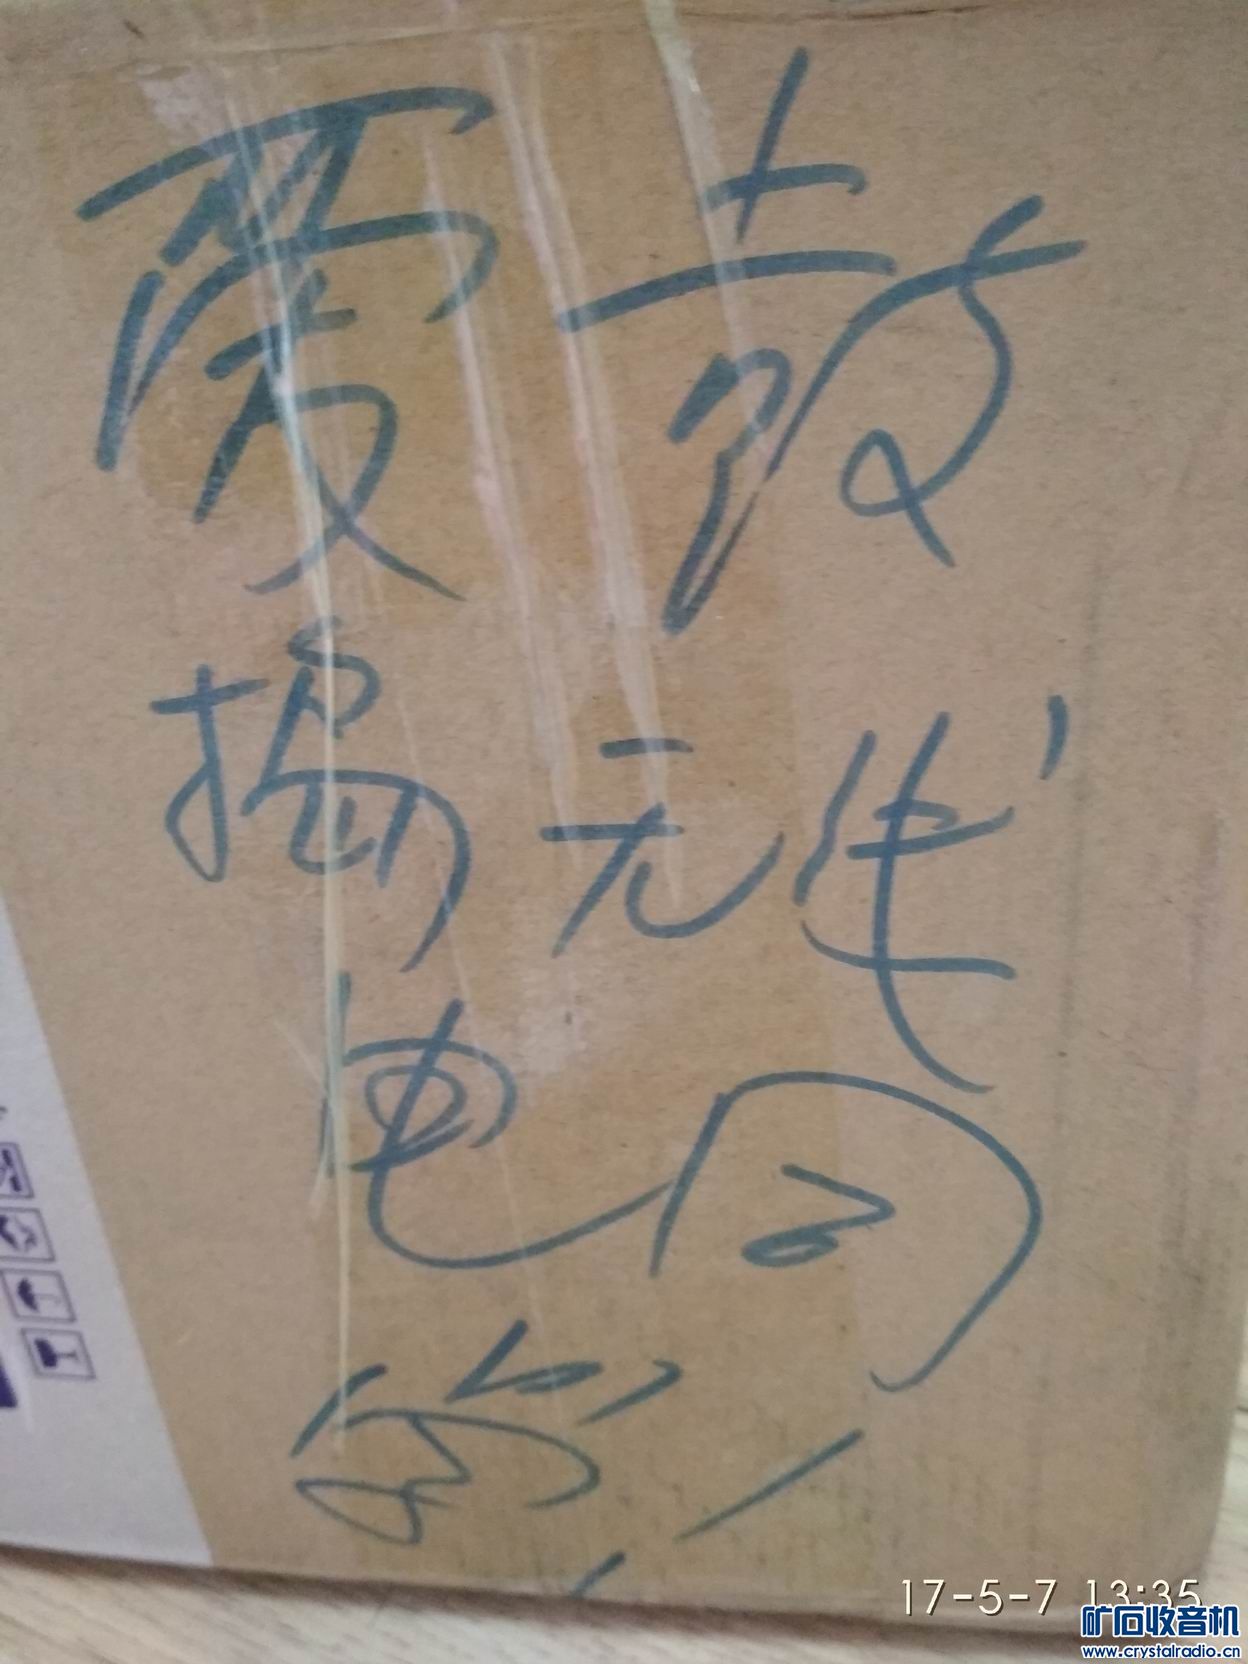 愛鼓
搗无线
电同
17-5-7 13:35
矿石收音机
www.crystalradio.cn